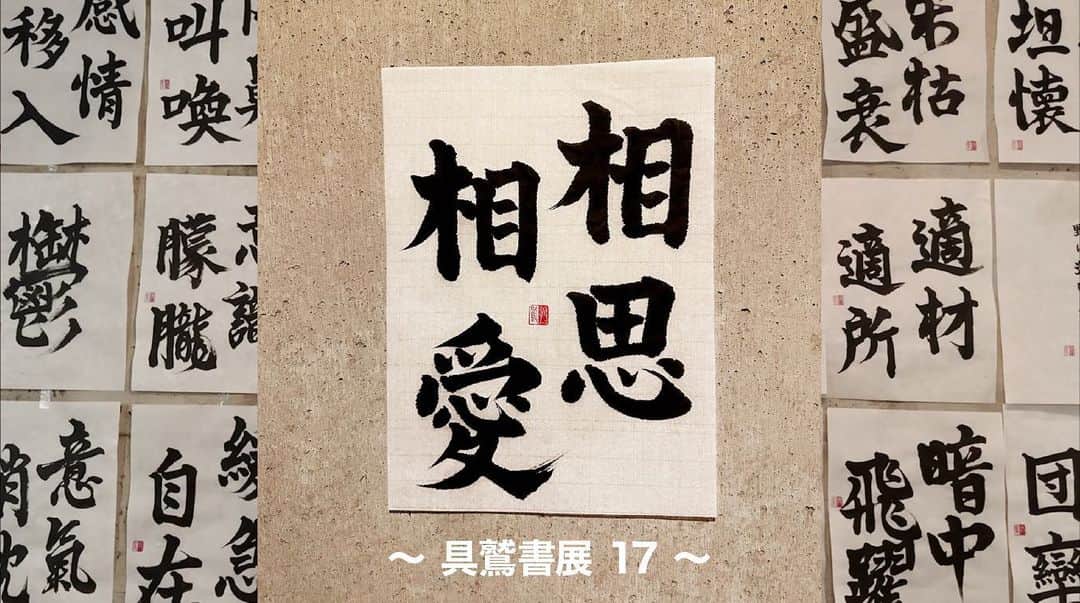 感情
移入
叫喚
相思
相愛
枯
盛衰
坦懐
鬱
朦朧
適材
適所
意氣
自在
暗中
飛躍
団欒
～ 具鷲書展 17 ～